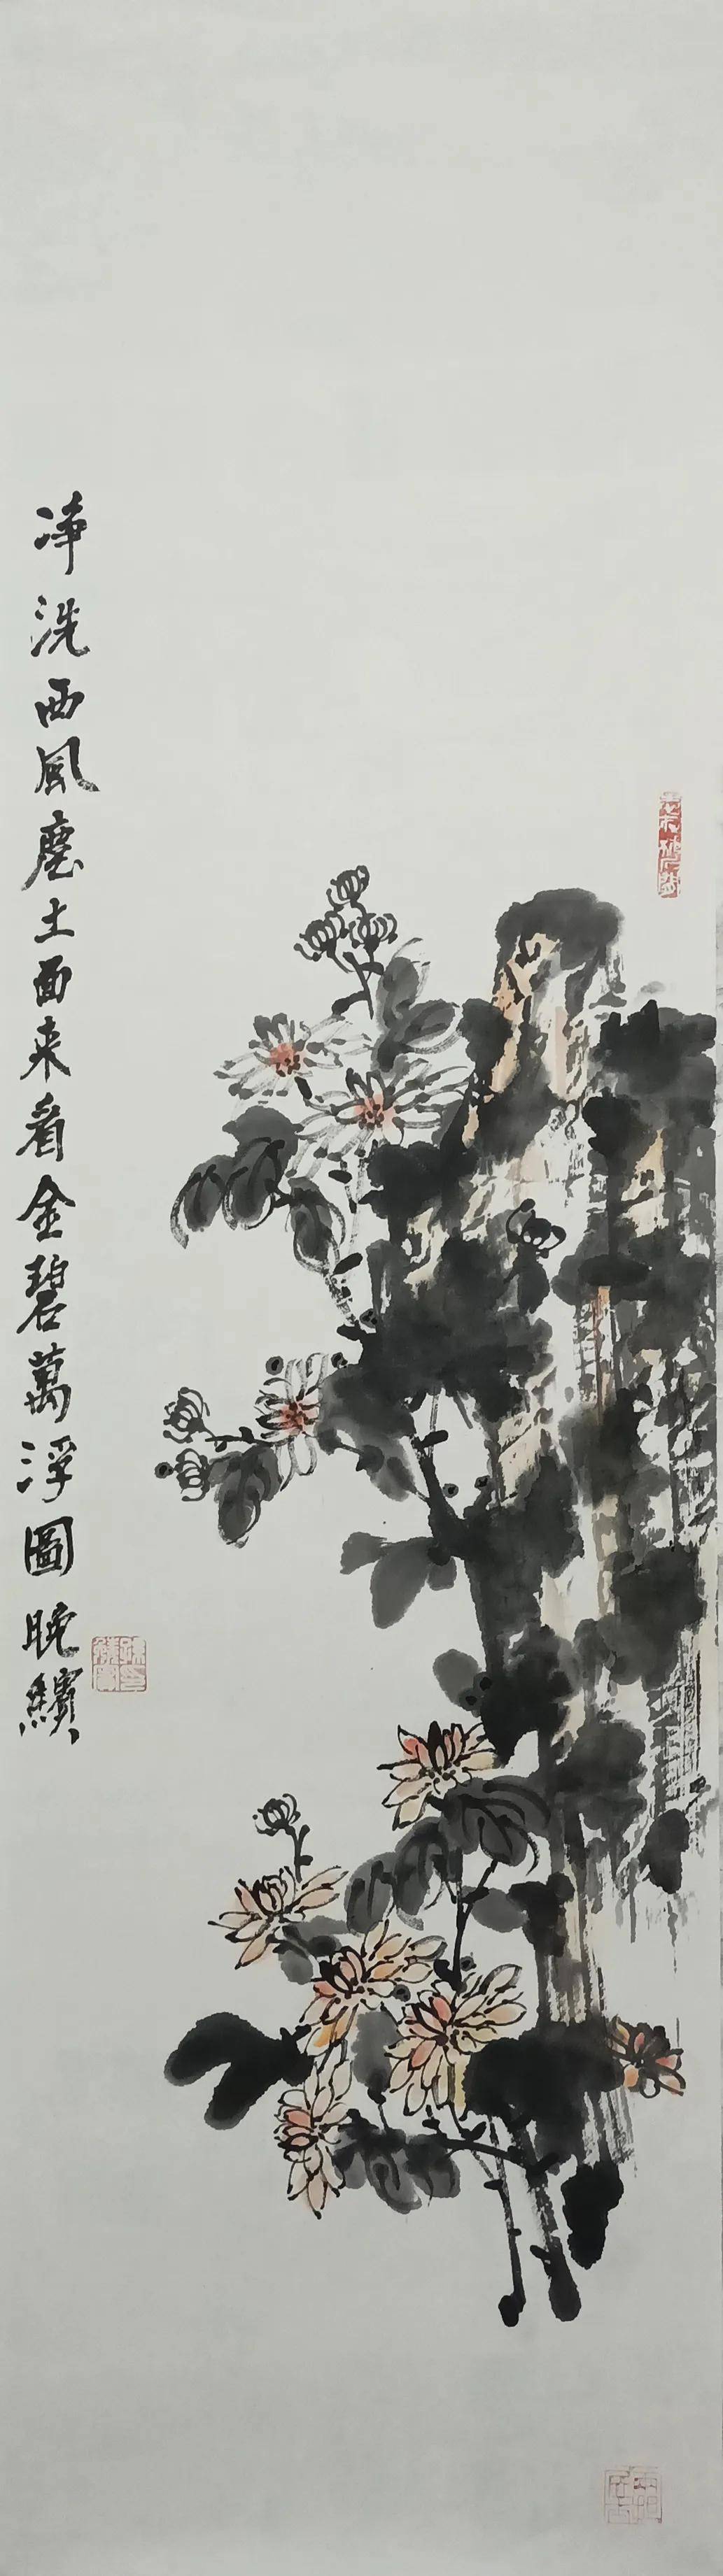 净洗西風塵土面来看金碧萬浮圖 晚繽